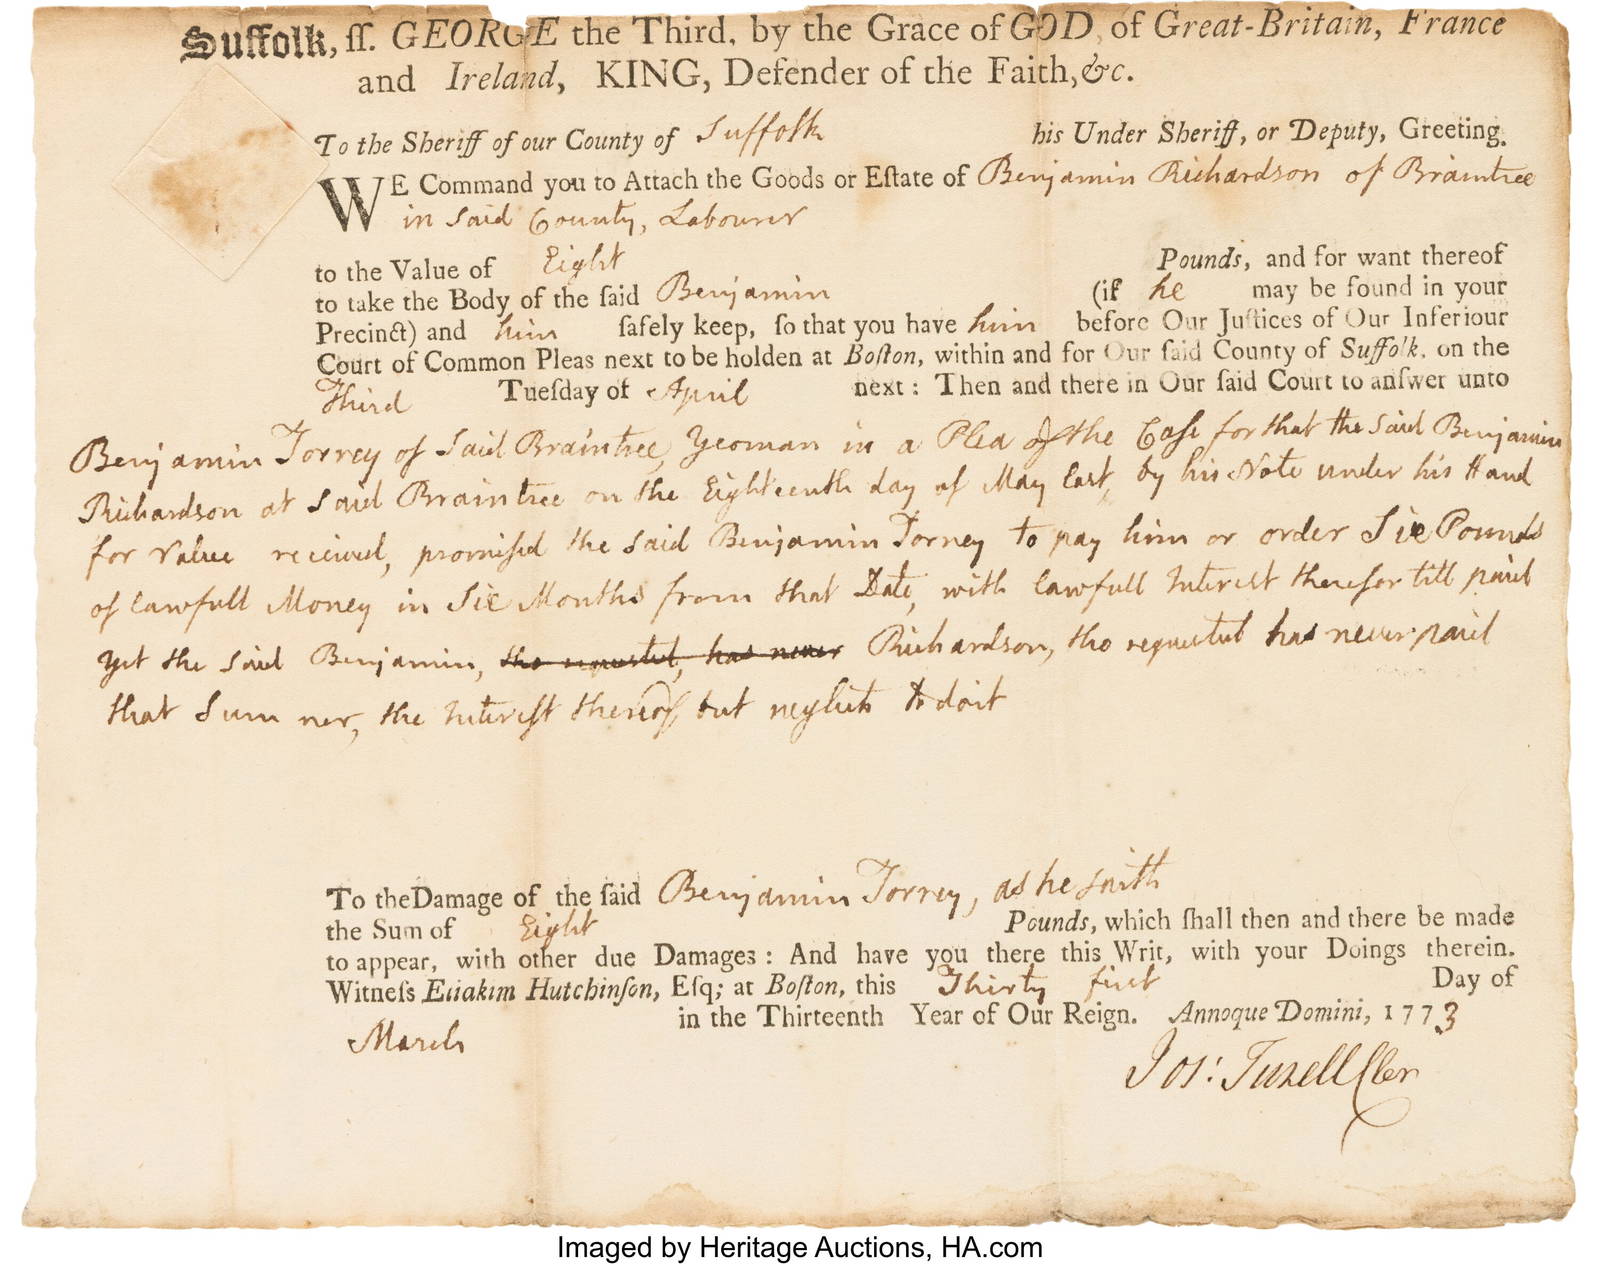 Suffolk, ſſ. GEORGE the Third, by the Grace of GOD, of Great-Britain, France
and Ireland, KING, Defender of the Faith, &c.
To the Sheriff of our County of Suffolk his Under Sheriff, or Deputy, Greeting.
WE Command you to Attach the Goods or Eſtate of Benjamin Richardson of Braintree
in said County, Labourer
to the Value of Eight Pounds, and for want thereof
to take the Body of the ſaid Benjamin (if he may be found in your
Precinct) and him ſafely keep, ſo that you have him before Our Juſtices of Our Inferiour
Court of Common Pleas next to be holden at Boſton, within and for Our ſaid County of Suffolk, on the
Third Tueſday of April next: Then and there in Our ſaid Court to anſwer unto
Benjamin Torrey of Said Braintree, Yeoman in a Plea of the Case for that the said Benjamin
Richardson at Said Braintree on the Eighteenth day of May last, by his Note under his Hand
for value received, promised the said Benjamin Torrey to pay him or order Six Pounds
of lawfull Money in Six Months from that Date, with lawfull Interest therefor till paid
yet the said Benjamin, tho requested, has never Richardson, tho requested has never paid
that Sum nor, the Interest thereof, but neglects to do it
To the Damage of the ſaid Benjamin Torrey, as he saith
the Sum of Eight Pounds, which ſhall then and there be made
to appear, with other due Damages: And have you there this Writ, with your Doings therein.
Witneſs Eliakim Hutchinſon, Eſq; at Boſton, this Thirty first Day of
March in the Thirteenth Year of Our Reign. Annoque Domini, 1773
Jos: Tuzell Cler
Imaged by Heritage Auctions, HA.com